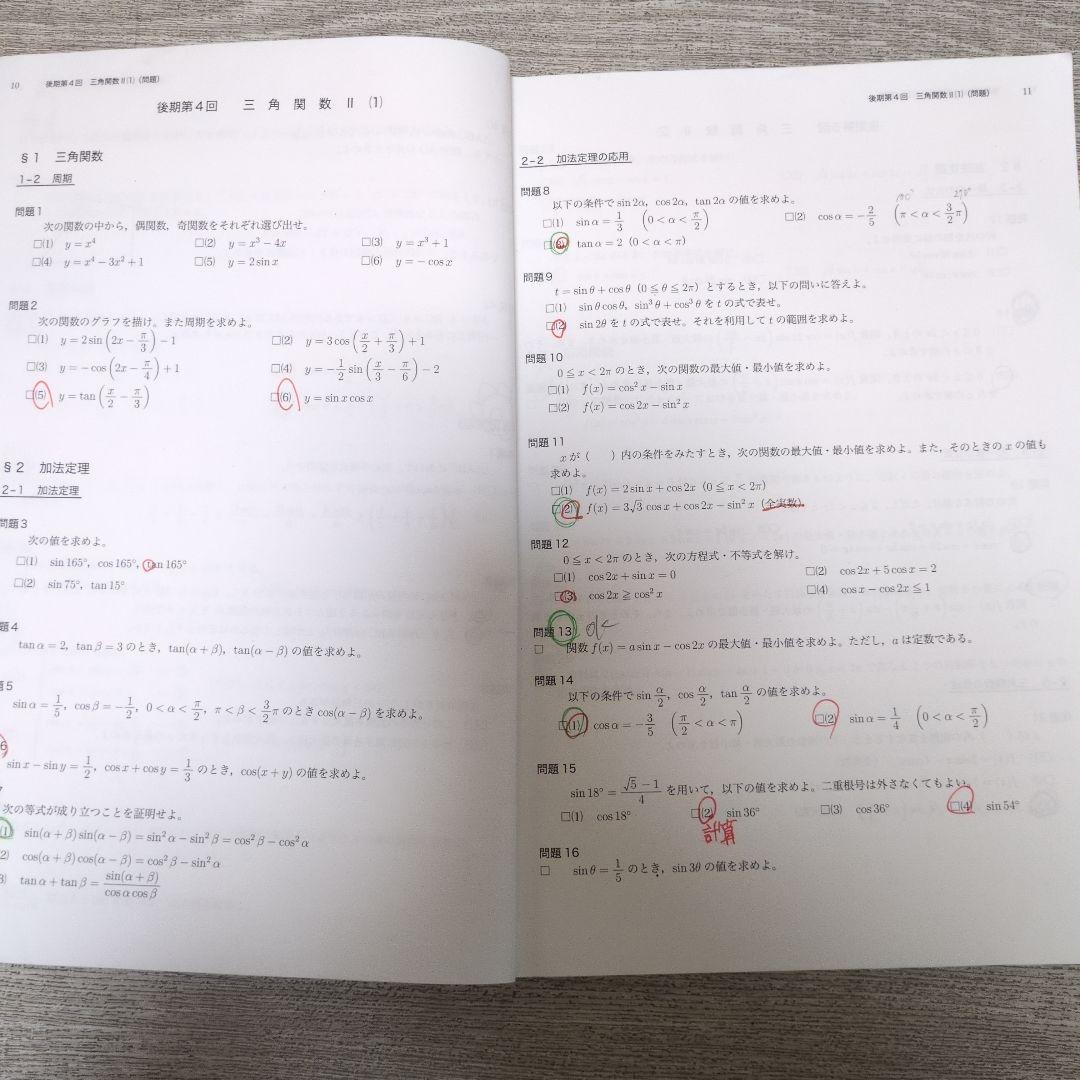 10 後期第4回 三角関数Ⅱ(1)(問題)
後期第4回 三角関数Ⅱ (1)
§1 三角関数
1-2 周期
問題1
次の関数の中から，偶関数，奇関数をそれぞれ選び出せ。
□(1) y = x⁴ □(2) y = x³ − 4x □(3) y = x³ + 1
□(4) y = x⁴ − 3x² + 1 □(5) y = 2 sin x □(6) y = − cos x
問題2
次の関数のグラフを描け。また周期を求めよ。
□(1) y = 2 sin (2x − π/3) − 1 □(2) y = 3 cos (x/2 + π/3) + 1
□(3) y = − cos (2x − π/4) + 1 □(4) y = −1/2 sin (x/3 − π/6) − 2
□(5) y = tan (x/2 − π/3) □(6) y = sin x cos x
§2 加法定理
2-1 加法定理
問題3
次の値を求めよ。
□(1) sin 165°，cos 165°，tan 165°
□(2) sin 75°，tan 15°
題4
tan α = 2，tan β = 3 のとき，tan(α + β)，tan(α − β) の値を求めよ。
題5
sin α = 1/5，cos β = −1/2，0 < α < π/2，π < β < 3/2 π のとき cos(α − β) を求めよ。
6
sin x − sin y = 1/2，cos x + cos y = 1/3 のとき，cos(x + y) の値を求めよ。
7
次の等式が成り立つことを証明せよ。
1) sin(α + β) sin(α − β) = sin² α − sin² β = cos² β − cos² α
2) cos(α + β) cos(α − β) = cos² β − sin² α
3) tan α + tan β = sin(α + β)/cos α cos β
後期第4回 三角関数Ⅱ(1)(問題) 11
2-2 加法定理の応用
問題8
以下の条件で sin 2α，cos 2α，tan 2α の値を求めよ。
□(1) sin α = 1/3 (0 < α < π/2) □(2) cos α = −2/5 (π < α < 3/2 π)
□(3) tan α = 2 (0 < α < π)
問題9
t = sin θ + cos θ (0 ≦ θ ≦ 2π) とするとき，以下の問いに答えよ。
□(1) sin θ cos θ，sin³ θ + cos³ θ を t の式で表せ。
□(2) sin 2θ を t の式で表せ。それを利用して t の範囲を求めよ。
問題10
0 ≦ x < 2π のとき，次の関数の最大値・最小値を求めよ。
□(1) f(x) = cos² x − sin x
□(2) f(x) = cos 2x − sin² x
問題11
x が ( ) 内の条件をみたすとき，次の関数の最大値・最小値を求めよ。また，そのときの x の値も
求めよ。
□(1) f(x) = 2 sin x + cos 2x (0 ≦ x < 2π)
□(2) f(x) = 3√3 cos x + cos 2x − sin² x (全実数)
問題12
0 ≦ x < 2π のとき，次の方程式・不等式を解け。
□(1) cos 2x + sin x = 0 □(2) cos 2x + 5 cos x = 2
□(3) cos 2x ≧ cos² x □(4) cos x − cos 2x ≦ 1
問題13 ok
□ 関数 f(x) = a sin x − cos 2x の最大値・最小値を求めよ。ただし，a は定数である。
問題14
以下の条件で sin α/2，cos α/2，tan α/2 の値を求めよ。
□(1) cos α = −3/5 (π/2 < α < π) □(2) sin α = 1/4 (0 < α < π/2)
問題15
sin 18° = (√5 − 1)/4 を用いて，以下の値を求めよ。二重根号は外さなくてもよい。
□(1) cos 18° □(2) sin 36° □(3) cos 36° □(4) sin 54°
計算
問題16
□ sin θ = 1/5 のとき，sin 3θ の値を求めよ。